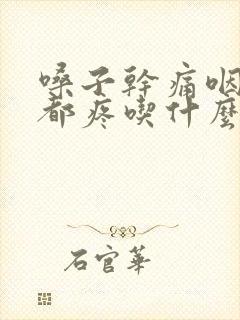 嗓子幹痛咽
都疼喫什麼
石官華